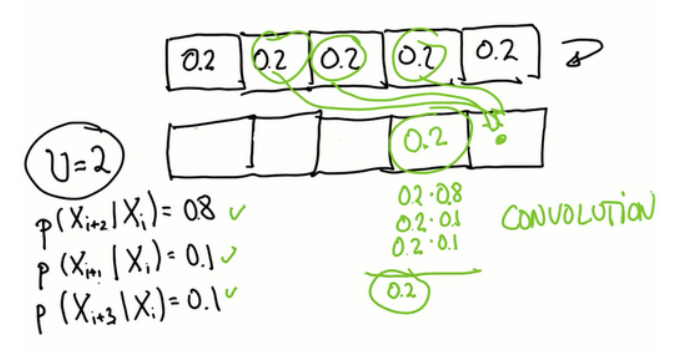 0.2 0.2 0.2 0.2 0.2
0.2
U=2
p(Xi+2|Xi)=0.8
p(Xi+1|Xi)=0.1
p(Xi+3|Xi)=0.1
0.2·0.8
0.2·0.1
0.2·0.1
0.2
CONVOLUTION